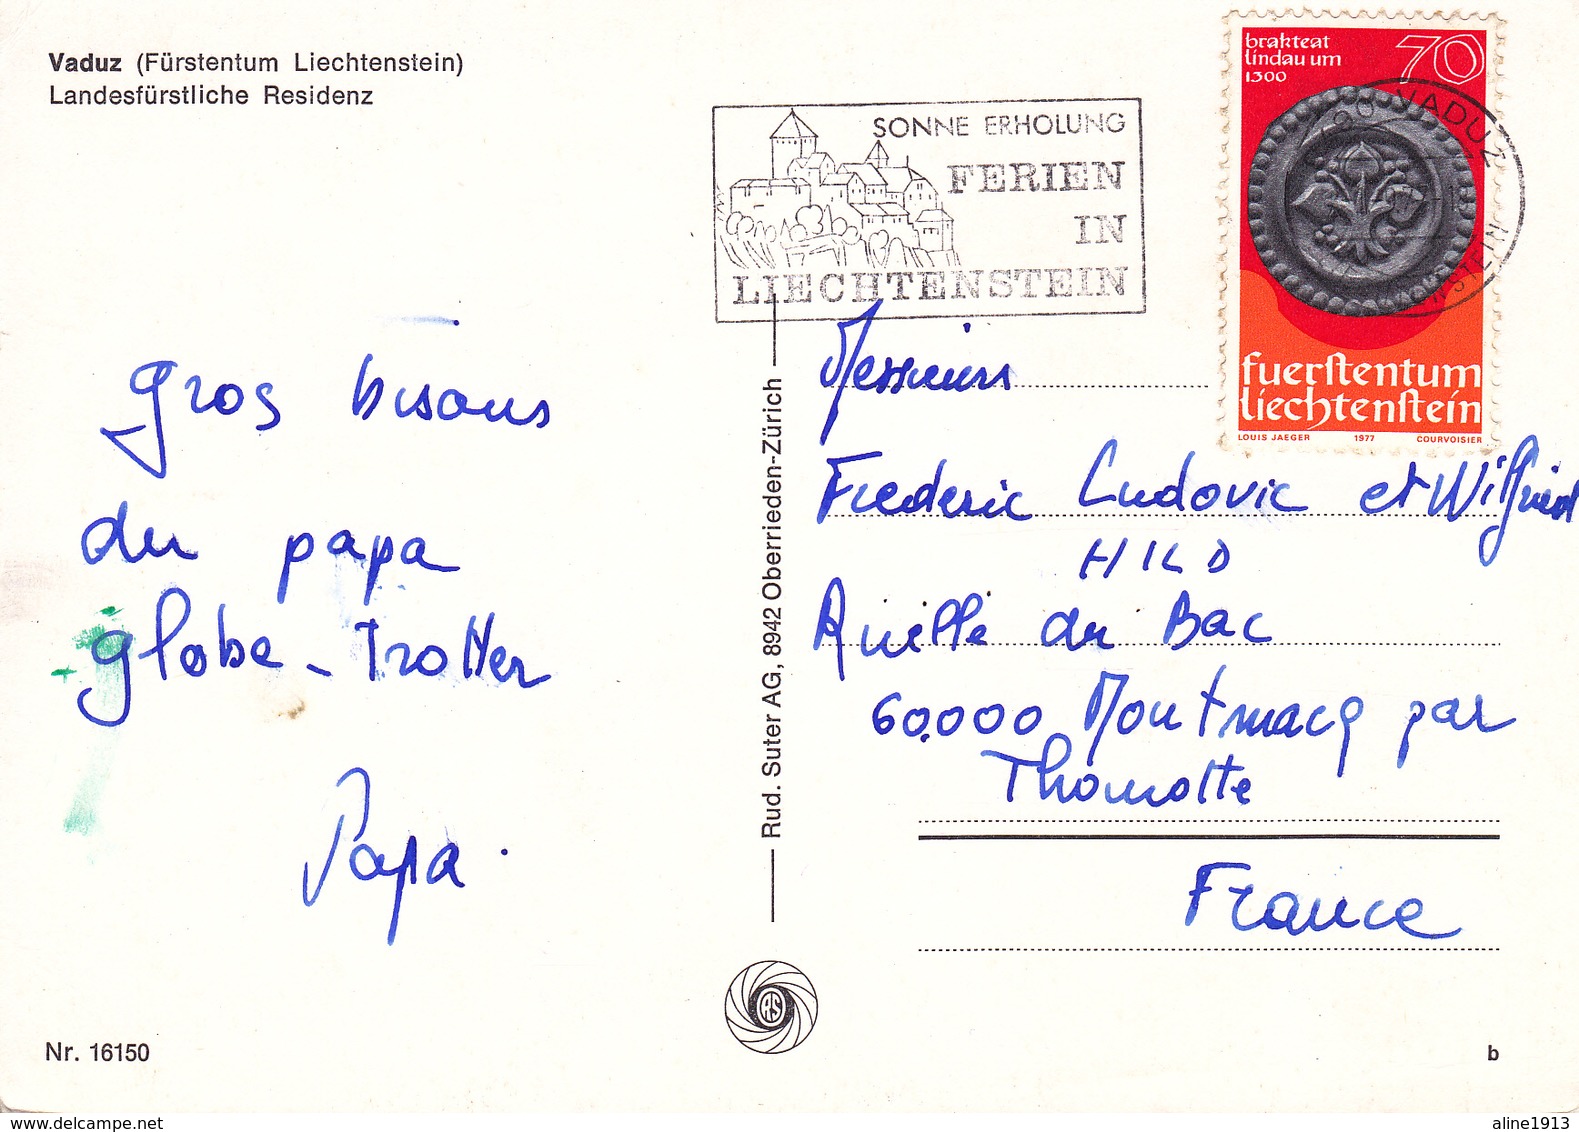 Vaduz (Fürstentum Liechtenstein)
Landesfürstliche Residenz
SONNE ERHOLUNG
FERIEN
IN
LIECHTENSTEIN
brakteat
lindau um
1300
70
VADUZ
fuerstentum
liechtenstein
LOUIS JAEGER 1977 COURVOISIER
Gros bisous
du papa
globe-Trotter
Papa.
Rud. Suter AG, 8942 Oberrieden-Zürich
Messieurs
Frederic Ludovic et Wilfried
HILD
Ruelle du Bac
60.000 Montmacq par
Thourotte
France
RS
Nr. 16150
b
www.delcampe.net
aline1913